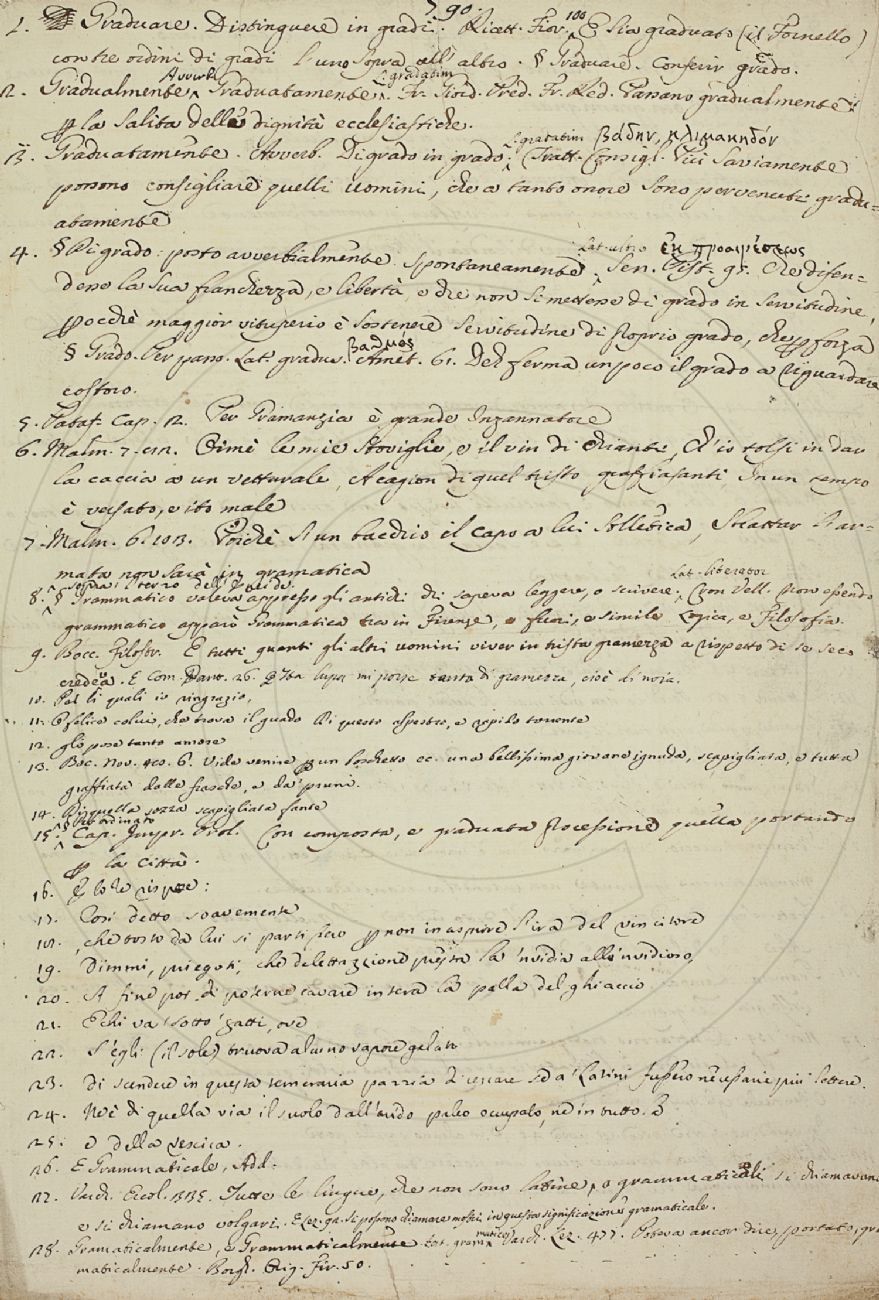 790.
1. Graduare. Distinguere in gradi. Ricett. Fior. 100 E sia graduato (il Fornello)
con tre ordini di gradi l'uno sopra all'altro. § Graduare. Conferir grado.
2. Gradualmente Avverb. Graduatamente. L. gradatim Fr. Giord. Pred. Fr. Red. Passano gradualmente
p la salita delle dignità ecclesiastiche.
3. Graduatamente. Avverb. Di grado in grado. L. gradatim βάδην, κλιμακηδόν Tratt. Consigl. Più saviamente
possono consigliare quelli uomini, che a tanto onore sono pervenuti gradu=
atamente
4. § Di grado: posto avverbialmente spontaneamente. Lat. ultro ἐκ προαιρέσεως Sen. Pist. 95. Che difen-
deno la sua franchezza, e libertà, e che non si mettono di grado in servitudine,
pocchè maggior vituperio è sostenere servitudine di proprio grado, che p forza
§ Grado. Per passo. Lat. gradus. βαθμός Amet. 61. Deh ferma un poco il grado a riguardare
costoro.
5. Pataf. Cap. 12. Per Gramanzia è grande Ingannatore
6. Malm. 7. Oimè le mie stoviglie, e il vin di Chianti, Ch'io tolsi in dar
la caccia a un vetturale, A cagion di quel tristo graffiasanti In un tempo
è versato, e ito male
7. Malm. 6. 103. Poichè s'un bacchio il capo a lui solletica, Scattar l'ar-
mata non sarà in gramatica
8. § Grammatico valeva appresso gli antichi chi sapeva leggere, o scrivere. Lat. literator Cron. Vell. Non essendo
grammatico apparò Grammatica tra in Firenze, e fuori, e simile Logica, e Filosofia.
9. Bocc. Filostr. E tutti quanti gli altri uomini viver in trista gramezza a rispetto di se seco
credea. E Com. Dant. 26. Questa lupa mi porse tanto di gramezza, cioè di noia.
10. Per li quali io ringrazio,
11. O felice colui, che trova il guado Di questo alpestro, e rapido torrente
12. gli pose tanto amore
13. Boc. Nov. 48. 6. Vide venire p un boschetto ec. una bellissima giovane ignuda, scapigliata, e tutta
graffiata dalle frasche, e da' pruni.
14. Di quella sozza scapigliata fante
15. § Per ordinato Cap. Impr. Prol. Con composta, e graduata processione quella portando
p la città.
16. E lo Re rispose:
17. Così detto soavemente
18. , che tosto da lui si partissero p non inasprire l'ira del vincitore
19. Dimmi, priegoti, che delettazione presta la 'nvidia allo 'nvidioso,
20. A fine poi di poterne cavare intera la palla del ghiaccio
21. E chi va sotto gatti, ove
22. S'egli (il sole) truova alcuno vapore gelato
23. Di scendere in questa temeraria pazzia di cercare se a' Latini fussero necessarie più lettere.
24. Nè è di quella via il suolo dall'arido paleo occupato, nè in tutto. E
25. e della vescica.
26. E Grammaticale, Add.
27. Varch. Ercol. 335. Tutte le lingue, che non sono lattine, o grammaticali si chiamavano
e si chiamano volgari. E Lez. 92. Si possono chiamare molti in questa significazione gramaticale.
28. Gramaticalmente, e Grammaticalmente Varch. Lez. 477. Poteva ancor dire, portato, gra
maticalmente. Borgh. Orig. Fir. 50.